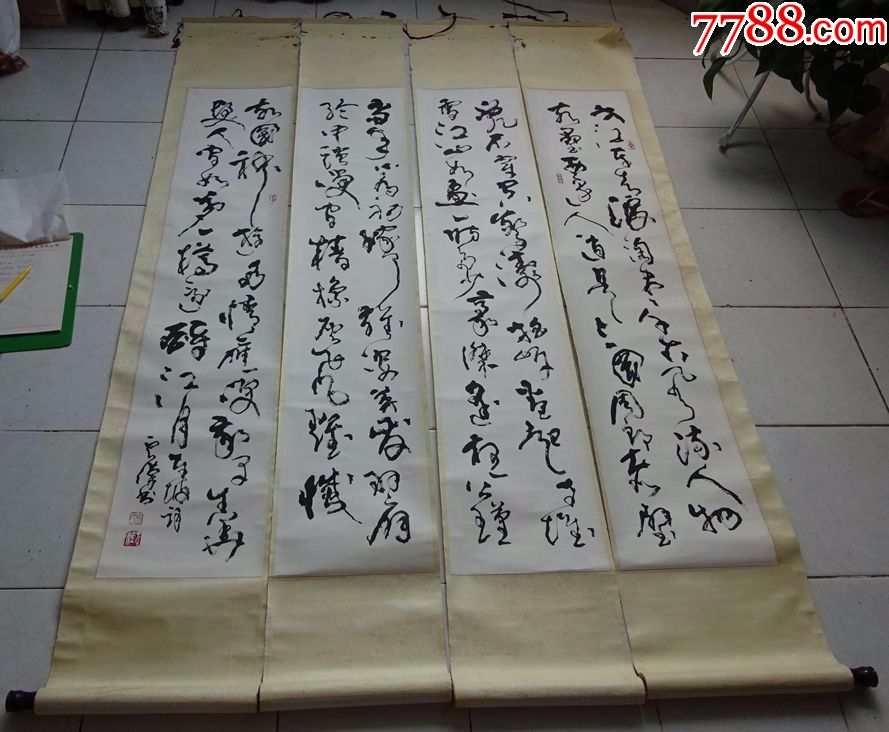 7788.com
大江东去浪淘尽千古风流人物
故垒西边人道是三國周郎赤壁
乱石穿空惊涛裂岸捲起千堆
雪江山如画一时多少豪杰遥想公瑾
当年小乔初嫁了雄姿英发羽扇
纶巾谈笑间樯橹灰飞烟灭
故國神游多情应笑我早生华
发人间如梦一樽还酹江月东坡词